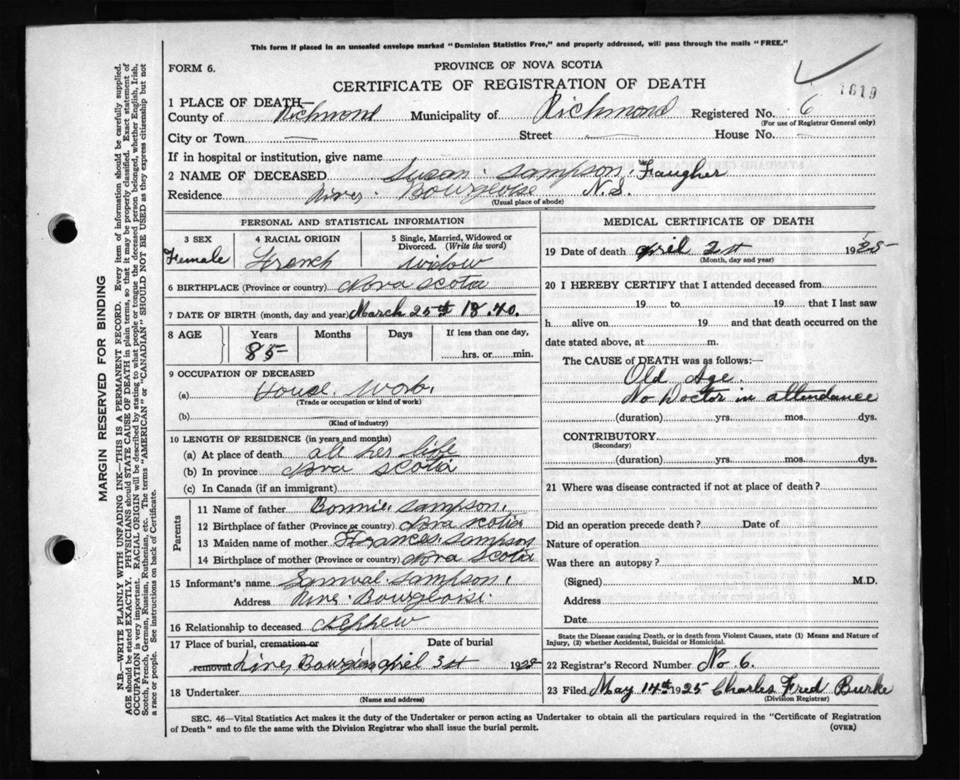 This form if placed in an unsealed envelope marked "Dominion Statistics Free," and properly addressed, will pass through the mails "FREE."
FORM 6.
PROVINCE OF NOVA SCOTIA
CERTIFICATE OF REGISTRATION OF DEATH
1819
1 PLACE OF DEATH—
County of Richmond Municipality of Richmond Registered No. 6
(For use of Registrar General only)
City or Town Street House No.
If in hospital or institution, give name
2 NAME OF DECEASED Susan Sampson Faugher
Residence River Bourgeoise N.S.
(Usual place of abode)
PERSONAL AND STATISTICAL INFORMATION
3 SEX 4 RACIAL ORIGIN 5 Single, Married, Widowed or Divorced. (Write the word)
Female French Widow
6 BIRTHPLACE (Province or country) Nova Scotia
7 DATE OF BIRTH (month, day and year) March 25th 1840.
8 AGE Years Months Days If less than one day,
85 hrs. or min.
9 OCCUPATION OF DECEASED
(a) House Work
(Trade or occupation or kind of work)
(b)
(Kind of industry)
10 LENGTH OF RESIDENCE (in years and months)
(a) At place of death all her life
(b) In province Nova Scotia
(c) In Canada (if an immigrant)
Parents
11 Name of father Bonnie Sampson.
12 Birthplace of father (Province or country) Nova Scotia
13 Maiden name of mother Frances Sampson
14 Birthplace of mother (Province or Country) Nova Scotia
15 Informant's name Samual Sampson.
Address River Bourgeoise
16 Relationship to deceased Nephew
17 Place of burial, cremation or Date of burial
removal River April 3st 1925
18 Undertaker
(Name and address)
MEDICAL CERTIFICATE OF DEATH
19 Date of death April 2st 1925
(Month, day and year)
20 I HEREBY CERTIFY that I attended deceased from
19 to 19 , that I last saw
h alive on 19 and that death occurred on the
date stated above, at m.
The CAUSE of DEATH was as follows:—
Old Age.
No Doctor in attendance
(duration) yrs. mos. dys.
CONTRIBUTORY
(Secondary)
(duration) yrs. mos. dys.
21 Where was disease contracted if not at place of death?
Did an operation precede death? Date of
Nature of operation
Was there an autopsy?
(Signed) M.D.
Address
Date
State the Disease causing Death, or in death from Violent Causes, state (1) Means and Nature of
Injury, (2) whether Accidental, Suicidal or Homicidal.
22 Registrar's Record Number No. 6.
23 Filed May 14th 1925 Charles Fred Burke
(Division Registrar)
SEC. 46—Vital Statistics Act makes it the duty of the Undertaker or person acting as Undertaker to obtain all the particulars required in the "Certificate of Registration
of Death" and to file the same with the Division Registrar who shall issue the burial permit. (OVER)
MARGIN RESERVED FOR BINDING
N.B.—WRITE PLAINLY WITH UNFADING INK—THIS IS A PERMANENT RECORD. Every item of information should be carefully supplied.
AGE should be stated EXACTLY. PHYSICIANS should STATE CAUSE OF DEATH in plain terms, so that it may be properly classified. Exact statement of
OCCUPATION is very important. RACIAL ORIGIN will be described by stating to what people or tongue the deceased person belonged, whether English, Irish,
Scotch, French, German, Russian, Ruthenian, etc. The terms "AMERICAN" or "CANADIAN" SHOULD NOT BE USED as they express citizenship but not
a race or people. See instructions on back of Certificate.